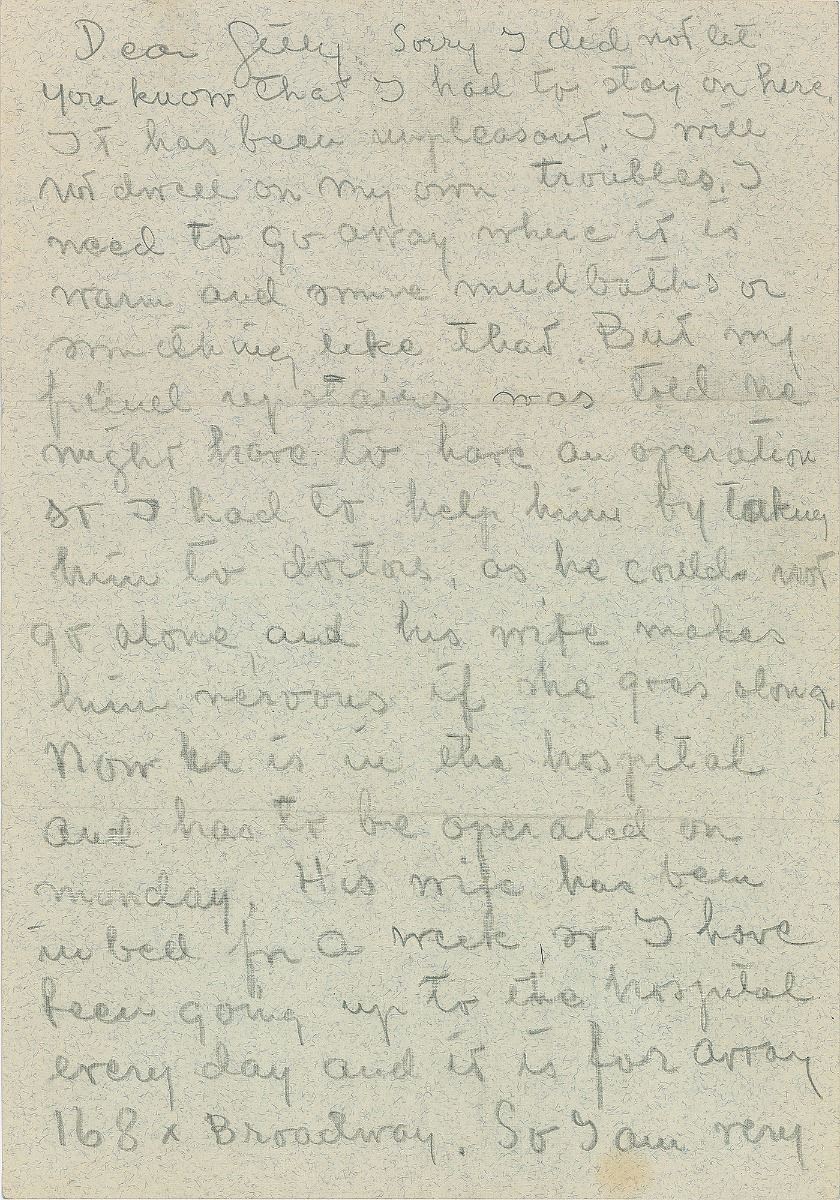 Dear Gilly. Sorry I did not let
you know that I had to stay on here.
It has been unpleasant. I will
not dwell on my own troubles. I
need to go away where it is
warm and some mudbaths or
something like that. But my
friend upstairs was told he
might have to have an operation
so I had to help him by taking
him to doctors, as he could not
go alone, and his wife makes
him nervous if she goes along.
Now he is in the hospital
and has to be operated on
monday. His wife has been
in bed for a week, so I have
been going up to the hospital
every day and it is far away
168 x Broadway. So I am very